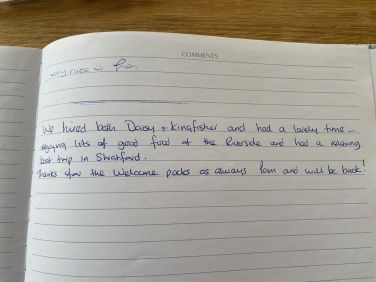 COMMENTS
very nice :)
We hired both Daisy + Kingfisher and had a lovely time -
enjoying lots of good food at the Riverside and had a relaxing
boat trip in Stratford.
Thanks for the Welcome packs as always and will be back!